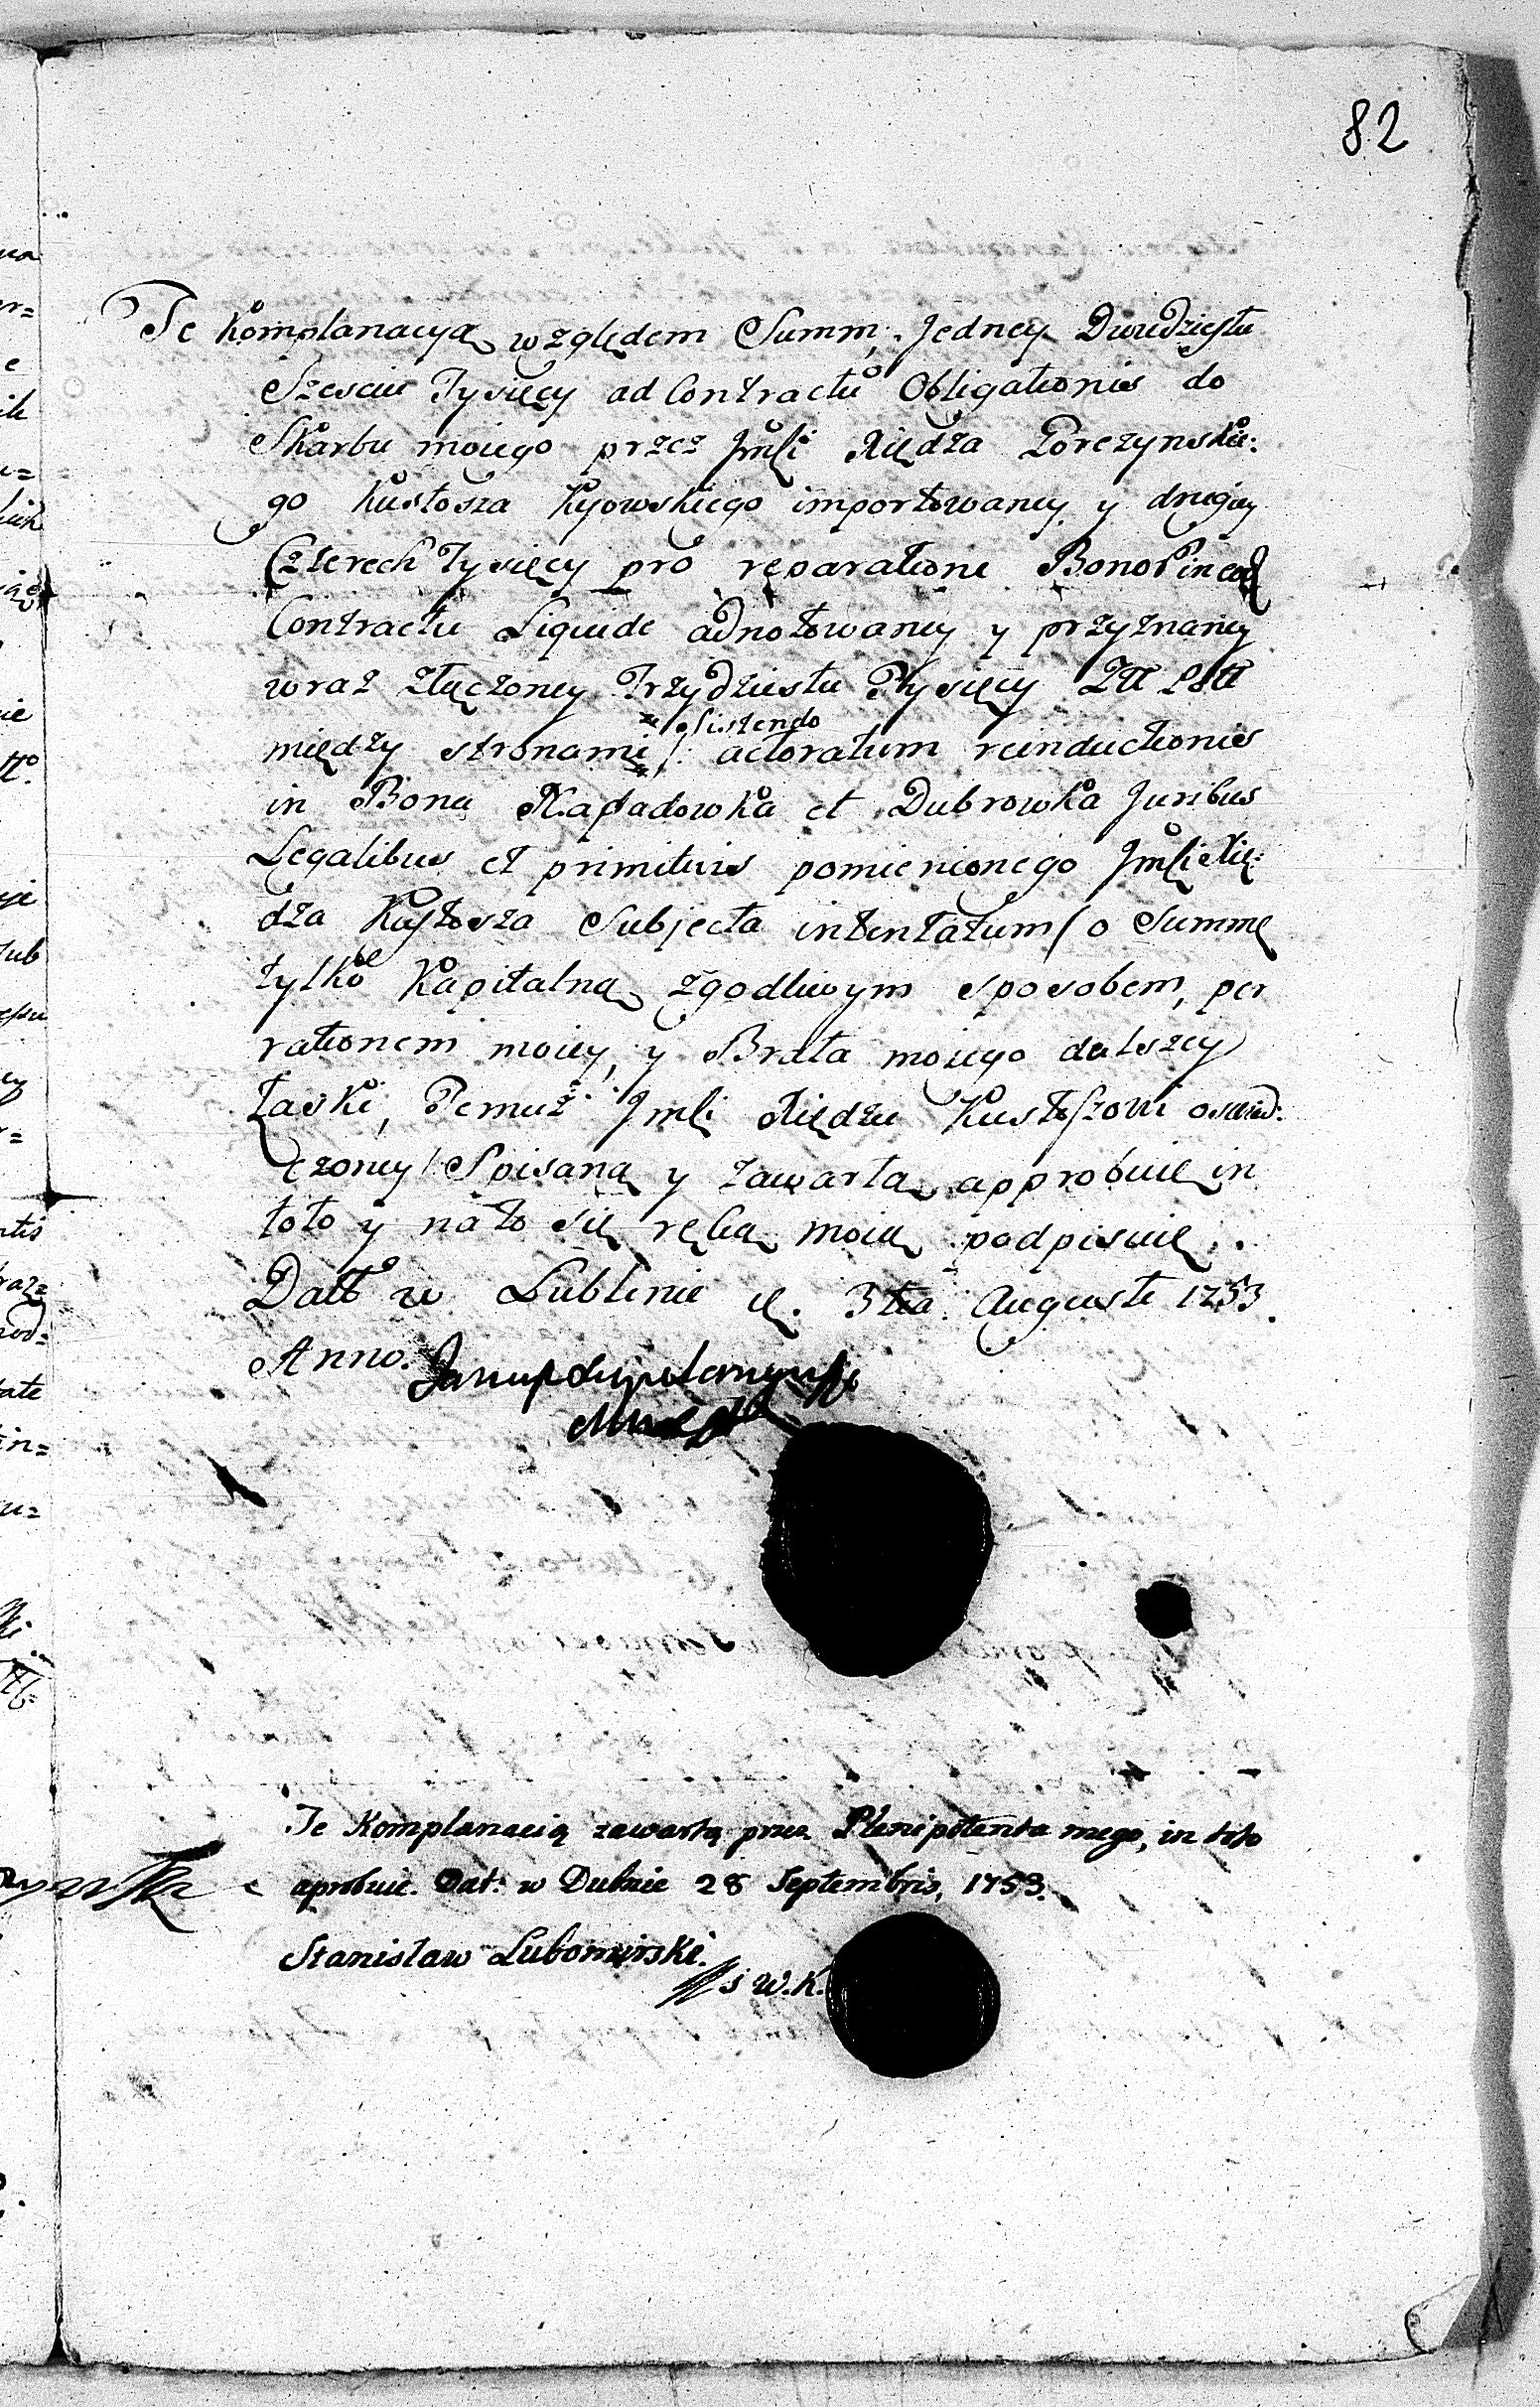 82
Te Komplanacyą względem Summ, Jedney Dwudziestu
Szesciu Tysięcy ad Contractu Obligationis do
Skarbu moiego przez Jmſci Xiędza Porczynskie:
go Kustosza Kyowskiego importowaney y drugiey
Czterech Tysięcy pro reparatione Bonor in eod
Contractu Liquide adnotowaney y przyznaney
wraz złączoney Trzydziestu Tysięcy Złł Pol
sistendo
między stronami /: actoratum reinductionis
in Bona Napadowka et Dubrowka Juribus
Legalibus et primituis pomienionego Jmſci Xię:
dza Kustosza Subjecta intentatum / o Summę
tylko Kapitalną zgodliwym sposobem, per
rationem moiey, y Brata moiego dalszey
łaski, Temuż Jmſci Xiędzu Kustoszowi oswiad:
czoney / Spisaną y zawartą approbuię in
toto y na to się ręką moią podpisuię.
Datt w Lublinie d. 3tia Augusti 1753.
Anno.
Te Komplanacią zawartą przez Plenipotenta mego, in toto
aprobuie. Dat: w Dubnie 28 Septembris, 1753.
Stanisław Lubomirski.
P S W. K.